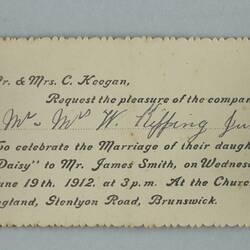 r. & Mrs. C. Keogan,
Request the pleasure of the compan
Mr. Mrs W. Kipping Jun
To celebrate the Marriage of their daugh
Daisy" to Mr. James Smith, on Wednes
une 19th. 1912. at 3 p.m. At the Church
ngland, Glenlyon Road, Brunswick.